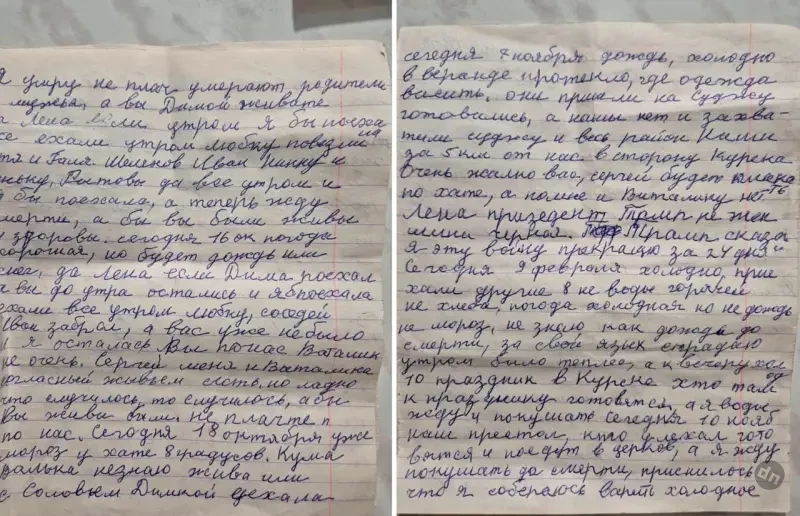 я умру не плач умерают родители
мужья, а вы Димой живите
а Лена если утром я бы поеха
все ехали утром любку повезли на
и Галя Шеменов Иван нинку и
Рытовы да все утром и
я бы поехала, а теперь жду
смерти, а бы вы были живы
и здоровы. сегодня 16 ок погода
хорошая, но будет дождь или
снег, да Лена если Дима поехал
а вы до утра остались и я б поехала
ехали все утром любку, соседей
Иван забрал, а вас уже небыло
и я осталась Вы по нас Виталик
не очень. Сергей меня и Виталика
согласный живьём сьесть, но ладно
что случилось, то случилось, абы
Вы живы были. не плачте п
по нас. Сегодня 18 октября уже
мороз у хате 8 градусов. Кума
валька незнаю жива или
с Соловьем Димкой уехала
сегодня 7 ноября дождь, холодно
в веранде протекло, где одежда
висить. они пришли на Суджу
готовились, а наши нет и захва-
тили суджу и весь район Наши
за 5 км от нас в сторону Курска
Очень жално вас, сергей будет плакать
по хате, а по мне и Виталику нет
Лена призедент Трамп не
Трамп сказа
я эту войну прекращю за 24 дня
Сегодня 9 февроля холодно, прие
хали другие 8 не воды горячей
не хлеба, погода холодная но не дождь
не мороз, не знаю как дожить до
смерти, за свой язык страдаю
утром было теплее, а к вечеру холод
10 праздник в Курске хто там
к празднику готовятся, а я воды
жду и покушать Сегодня 10 нояб
наш престол, кто уехал гото
вятся и поедут в церков, а я жду
покушать да смерти, приснилось
что я собераюсь варить холодное
dn